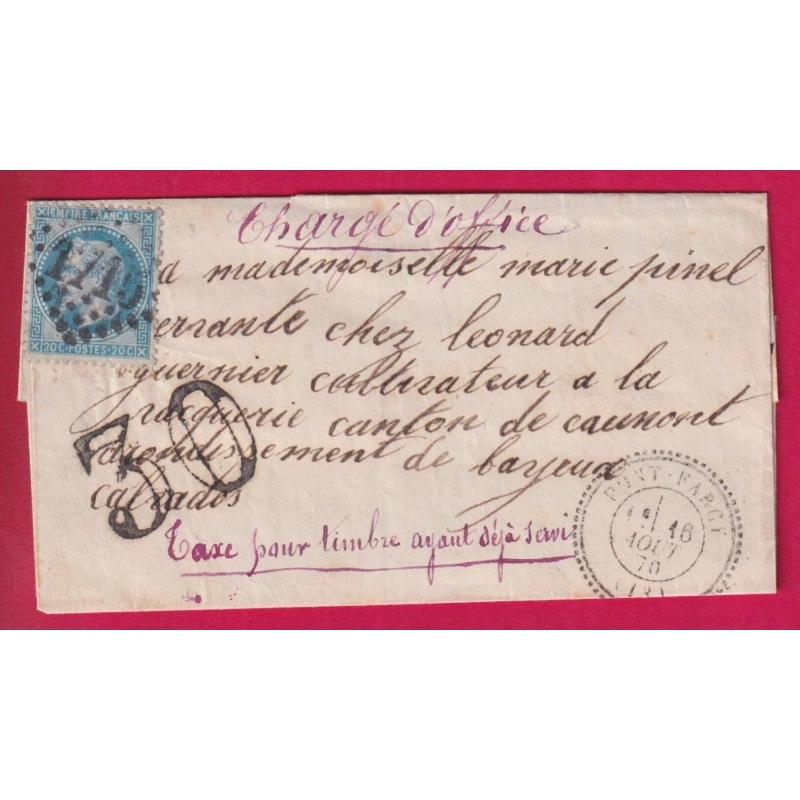 EMPIRE FRANÇAIS
20C·POSTES·20C
Chargé d'office
a mademoiselle marie pinel
servante chez leonard
guernier coltivateur a la
racquerie canton de caumont
arondissement de bayeux
calvados
30
Taxe pour timbre ayant déjà servi
PONT-FARCY
16
AOUT
70
(13)